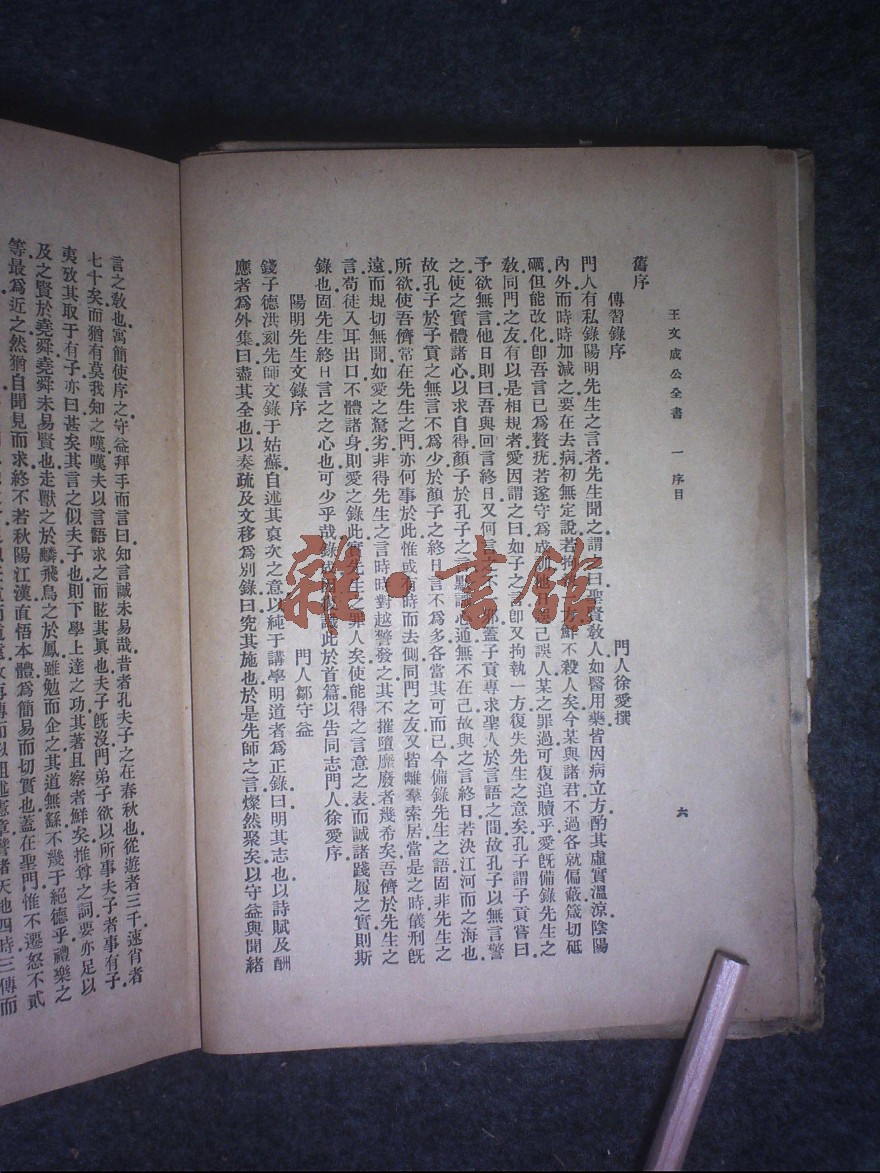 王文成公全書 一 序目 六
舊序
傳習錄序 門人徐愛撰
門人有私錄陽明先生之言者先生聞之謂之曰聖賢教人如醫用藥皆因病立方酌其虛實溫涼陰陽
內外而時時加減之要在去病初無定說若拘一方鮮不殺人矣今某與諸君不過各就偏蔽箴切砥
礪但能改化卽吾言已爲贅疣若遂守爲成訓他日誤己誤人某之罪過可復追贖乎愛旣備錄先生之
敎同門之友有以是相規者愛因謂之曰如子之言卽又拘執一方復失先生之意矣孔子謂子貢嘗曰
予欲無言他日則曰吾與回言終日又何言之不 邪蓋子貢專求聖人於言語之間故孔子以無言警
之使之實體諸心以求自得顏子於孔子之言默識心通無不在己故與之言終日若決江河而之海也
故孔子於子貢之無言不爲少於顏子之終日言不爲多各當其可而已今備錄先生之語固非先生之
所欲使吾儕常在先生之門亦何事於此惟或有時而去側同門之友又皆離羣索居當是之時儀刑旣
遠而規切無聞如愛之駑劣非得先生之言時時對越警發之其不摧墮靡廢者幾希矣吾儕於先生之
言苟徒入耳出口不體諸身則愛之錄此實先生之罪人矣使能得之言意之表而誠諸踐履之實則斯
錄也固先生終日言之之心也可少乎哉錄成因復識此於首篇以告同志門人徐愛序
陽明先生文錄序 門人鄒守益
錢子德洪刻先師文錄于姑蘇自述其裒次之意以純于講學明道者爲正錄曰明其志也以詩賦及酬
應者爲外集曰盡其全也以奏疏及文移爲別錄曰究其施也於是先師之言燦然聚矣以守益與聞緒
言之敎也寓簡使序之守益拜手而言曰知言誠未易哉昔者孔夫子之在春秋也從遊者三千速肖者
七十矣而猶有莫我知之嘆嘆夫以言語求之而眩其眞也夫子旣沒門弟子欲以所事夫子者事有子
夷攷其取于有子亦曰甚矣其言之似夫子也則下學上達之功其著且察者鮮矣推尊之詞要亦足以
及之賢於堯舜堯舜未易賢也走獸之於麟飛鳥之於鳳雖勉而企之其道無繇不幾于絕德乎禮樂之
等最爲近之然猶自聞見而求終不若秋陽江漢直悟本體爲簡易而切實也蓋在聖門惟不遷怒不貳
再傳而似祖述憲章譬諸天地四時三傳而
雜·書館